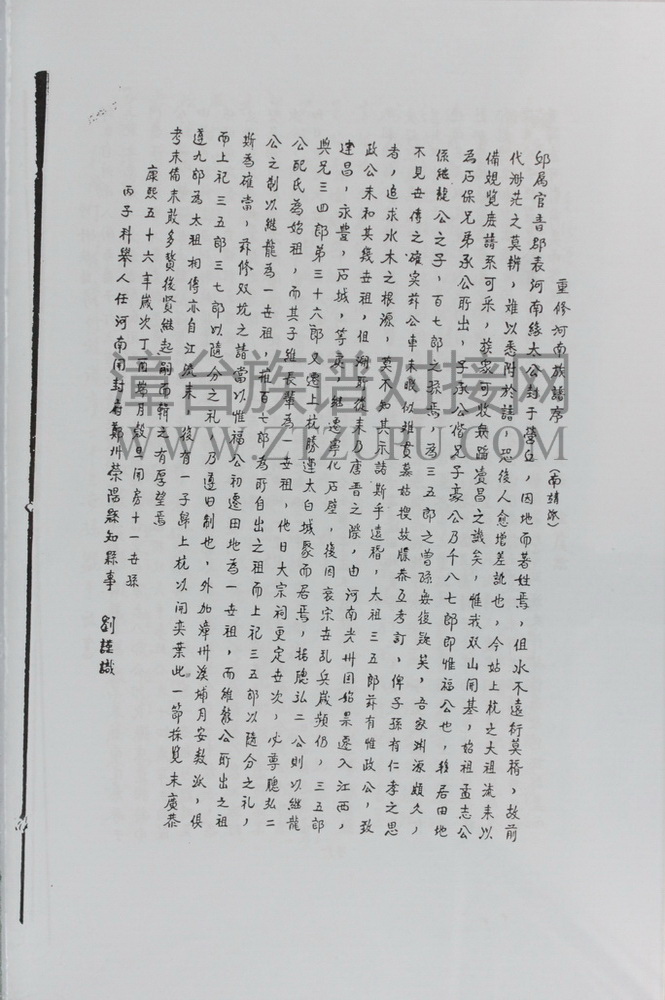 重修河南族譜序（南靖派）
邱属官音郎表河南緣太公封于營丘，因地而著姓焉，但水不遠衍莫稽，故前
代渺茫之莫辨，難以悉附於譜，恐後人愈增差訛也，今姑上杭之大祖流来以
備規覧庶請系可采，族衆可收無蹈賣昌之譏矣，惟我双山開基，始祖孟志公
為石保兄弟承公所出，子承公偕兄子豪公乃千八七郎即惟福公也，移居田地
係継龍公之子，百七郎之孫焉，為三五郎之曾孫無復疑矣，吾家渊源頗久，
不見世傳之確實并公車未暇以雖貫基姑搜故牒恭互考訂，俾子孫有仁孝之思
者，追求水木之根源，莫不知其示諸斯乎遠稽，太祖三五郎并有惟政公，致
政公未和其幾世祖，但溯所從来乃唐晋之際，由河南光州固始県遷入江西，
建昌，永豐，石城，等处，継遷寧化石壁，後因哀宗世乱兵歳頻仍，三五郎
與兄三四郎弟三十六郎又遷上杭勝運太白城聚而居焉，揚聰弘二公則以継龍
公配氏為始祖，而其子維長輩為一世祖，他日大宗祠更定世次，必尊聰弘二
公之制以継龍為一世祖，祖百七郎為所自出之祖而上祀三五郎以隨分之礼，
斯為確當，茲修双坑之譜當以惟福公初遷田地為一世祖，而維龍公所出之祖
而上祀三五郎三七郎以隨分之礼，乃遵旧制也，外加漳州溪埔月安敖派，俱
遵九郎為太祖相傳亦自江流来，後有一子歸上杭以開奕葉此一節採覧未廣恭
考未備未敢多贅後賢継起嗣而輯之有厚望焉
康熙五十六年歲次丁酉端月穀旦開房十一世孫
丙子科舉人任河南開封府鄭州荣陽縣知縣事　劉謹識
漳台族谱对接网
WWW.ZTZUPU.COM